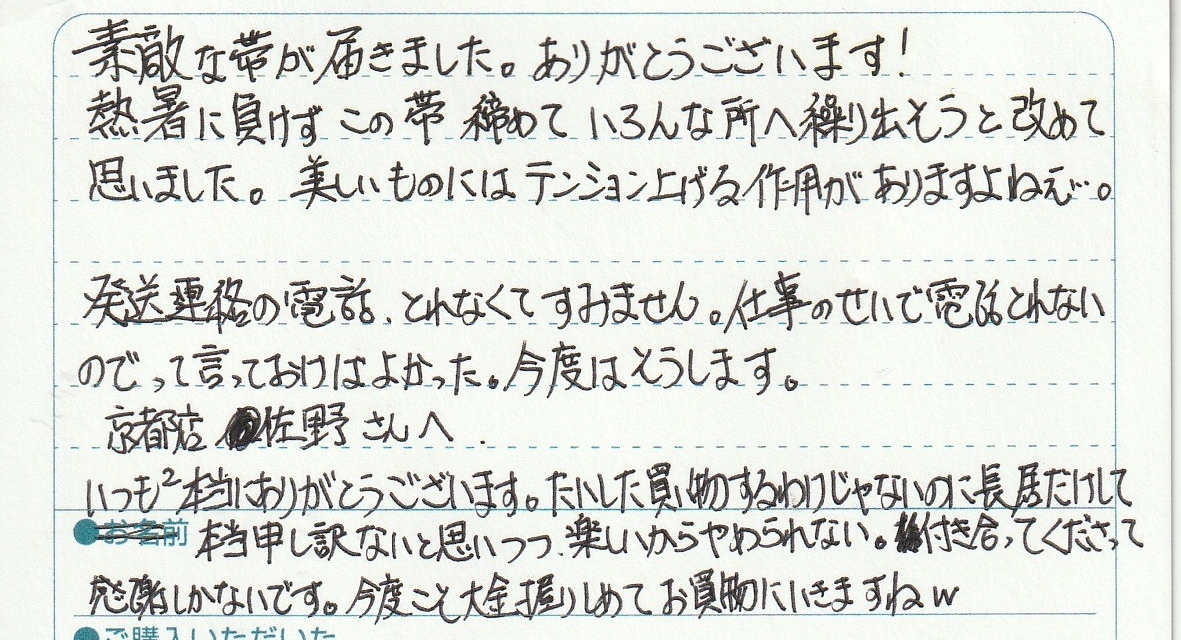 素敵な帯が届きました。ありがとうございます!
熱暑に負けず この帯 締めて いろんな所へ繰り出そうと改めて
思いました。 美しいものには テンション上げる作用が ありますよねぇ…。
発送連絡の電話、とれなくて すみません。仕事のせいで電話とれない
のでって言っておけばよかった。今度はそうします。
京都店 佐野さんへ.
いつも²本当にありがとうございます。たいした買い物するわけじゃないのに長居だけして
●お名前 本当申し訳ないと思いつつ、楽しいからやめられない。付き合ってくださって
感謝しかないです。今度こそ大金握りしめてお買物にいきますねw
●ご購入いただいた